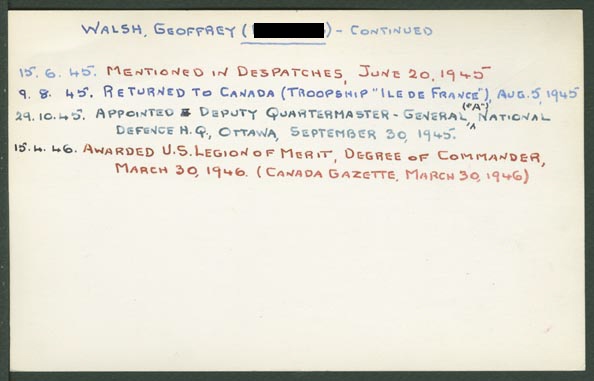 WALSH, GEOFFREY ( ) - CONTINUED
15. 6. 45. MENTIONED IN DESPATCHES, JUNE 20, 1945
9. 8. 45. RETURNED TO CANADA (TROOPSHIP "ILE DE FRANCE"), AUG. 5, 1945
29.10.45. APPOINTED DEPUTY QUARTERMASTER-GENERAL ("A"), NATIONAL
DEFENCE H.Q., OTTAWA, SEPTEMBER 30, 1945.
15.4.46. AWARDED U.S. LEGION OF MERIT, DEGREE OF COMMANDER,
MARCH 30, 1946. (CANADA GAZETTE, MARCH 30, 1946)